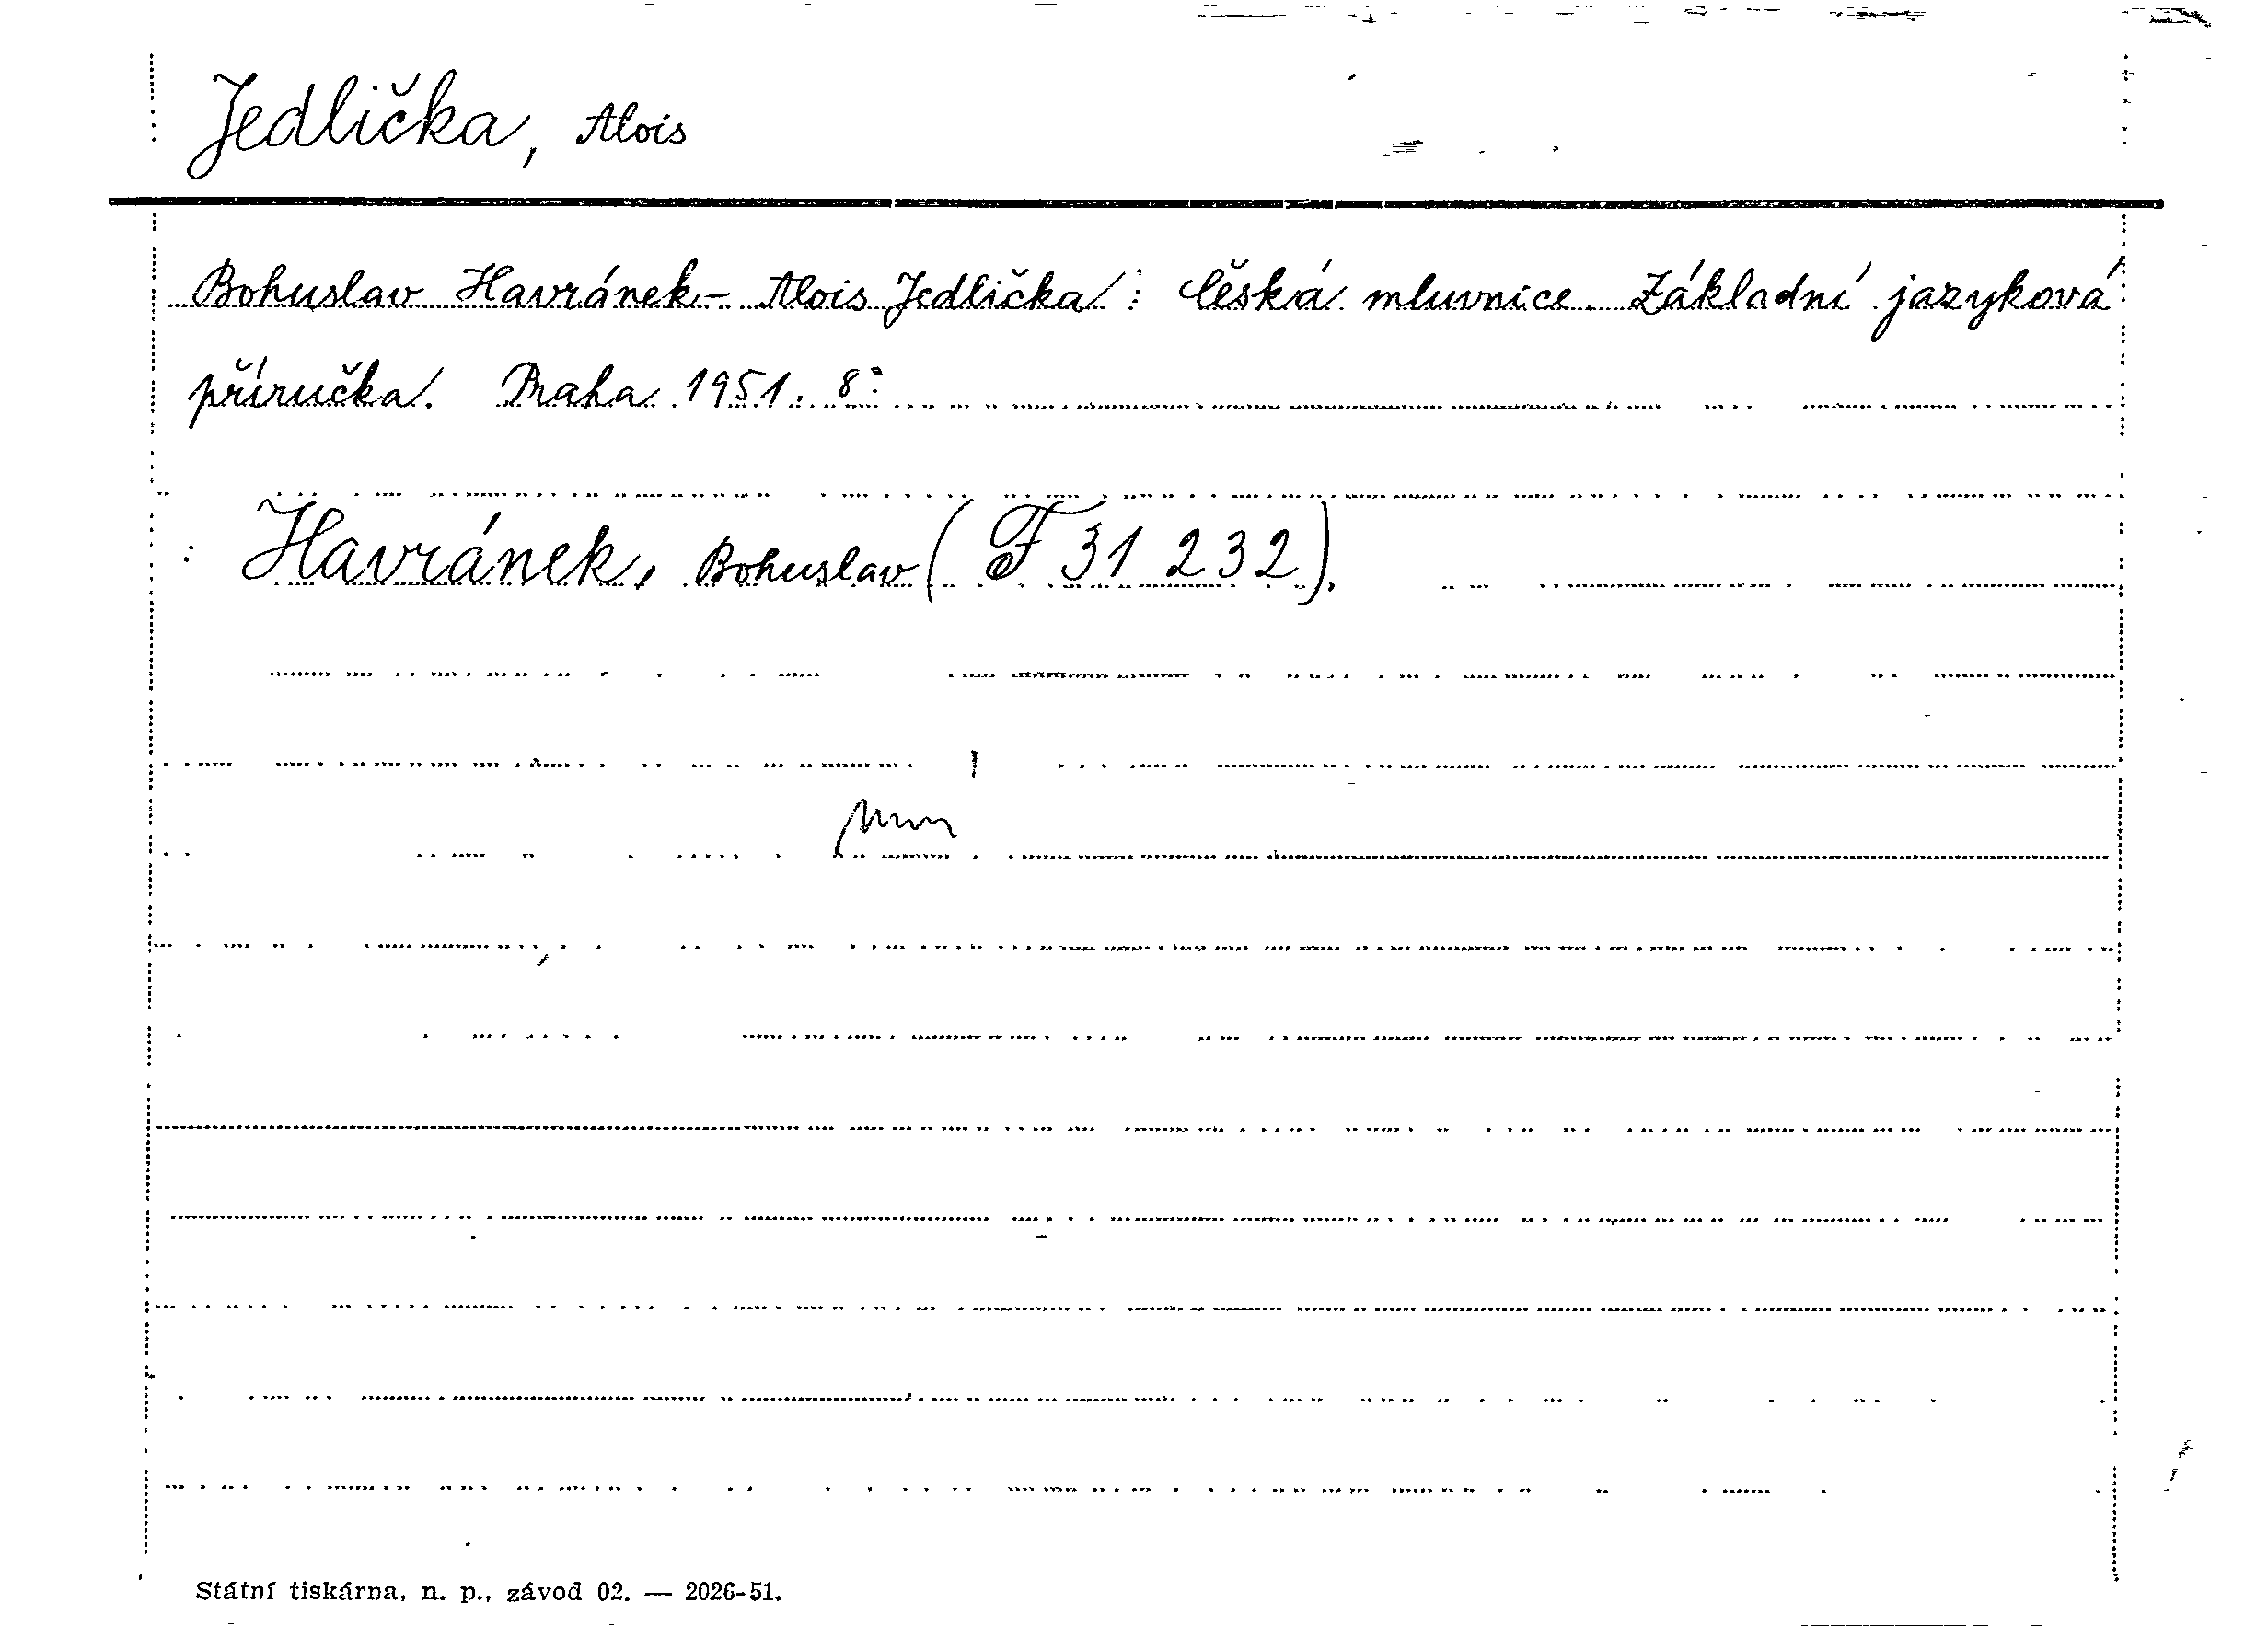 Jedlička, Alois
Bohuslav Havránek - Alois Jedlička: Česká mluvnice. Základní jazyková
příručka. Praha 1951. 8°
: Havránek, Bohuslav (F 31 232).
Státní tiskárna, n. p., závod 02. — 2026-51.